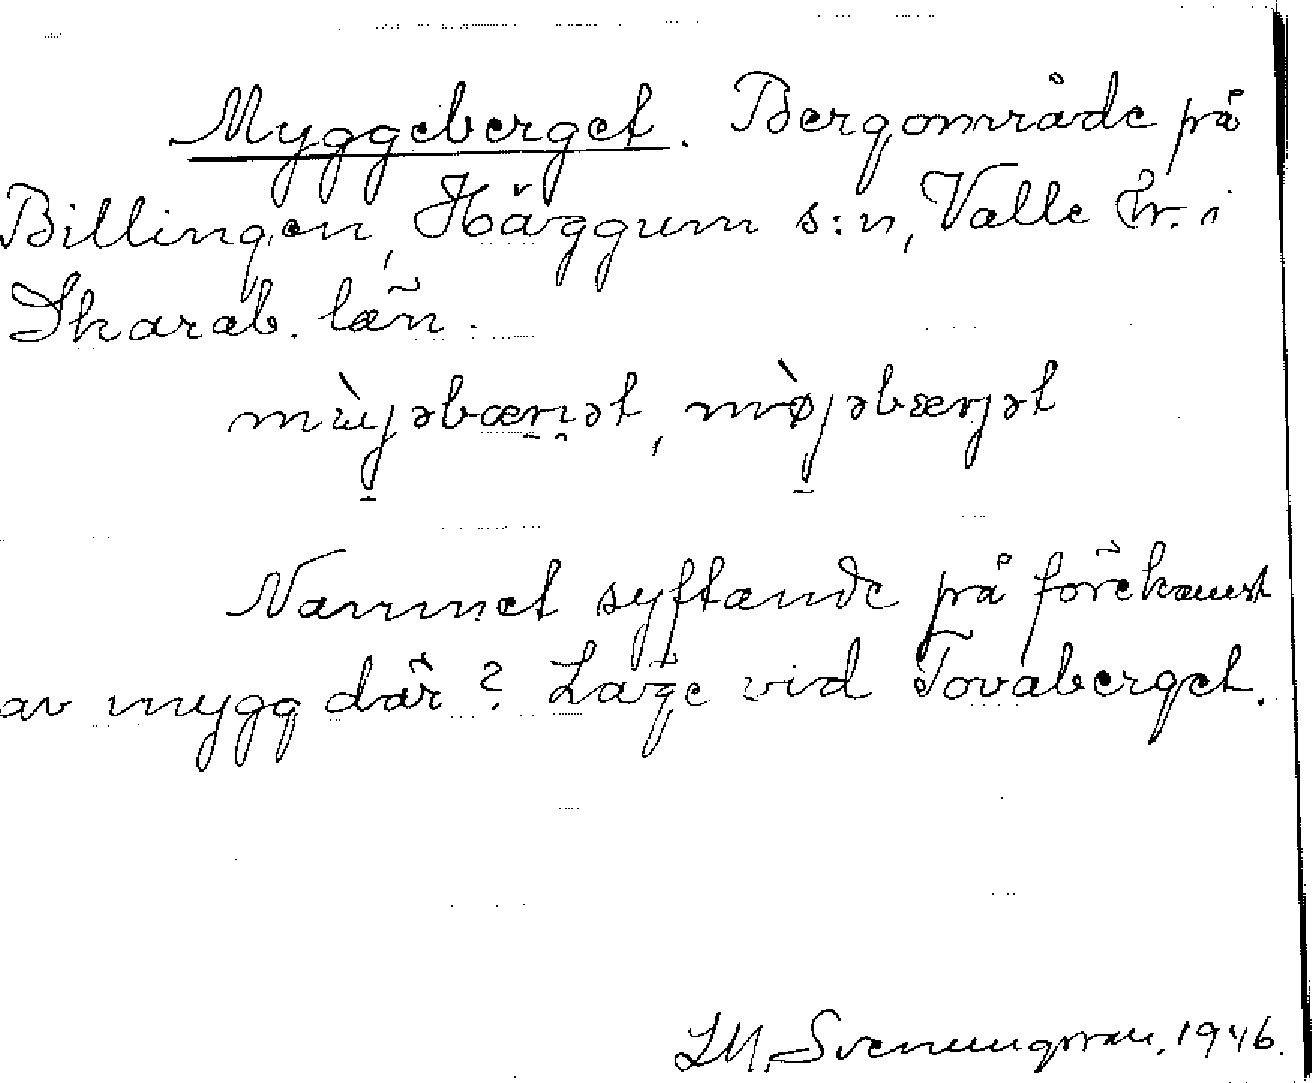 Myggeberget. Bergområde på
Billingen, Häggum s:n, Valle hr. i
Skarab. län.
Namnet syftande på förekomst
av mygg där? Läge vid Tovaberget.
Svenungsson. 1946.